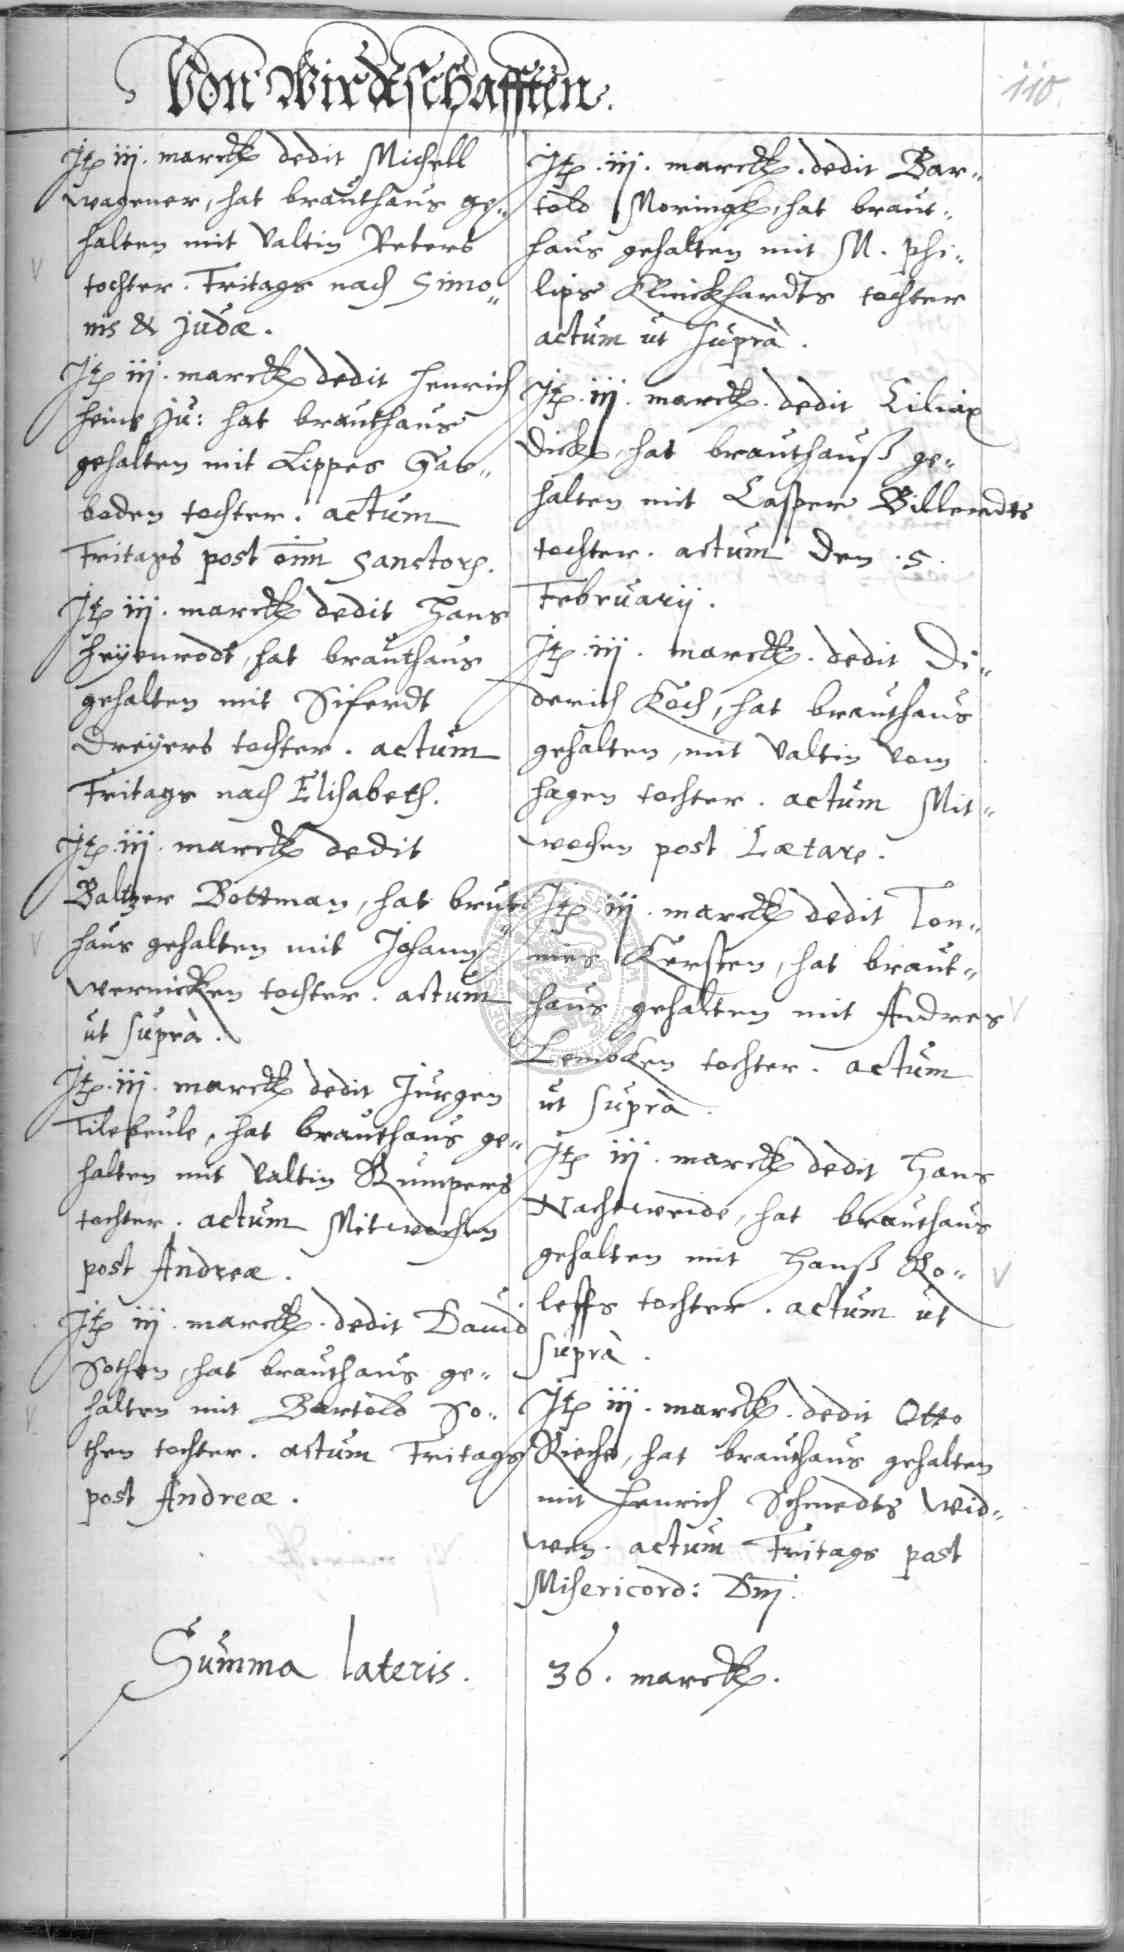 Von Wirdtschafften.
110.
Jtē iij. marck dedit Michell
wagener, hat brauthaus ge„
halten mit Valtin Peters
tochter. Fritags nach Simo„
nis & Judæ.
Jtē iij. marck dedit Henrich
Heine Ju: hat brauthaus
gehalten mit Lippes
boden tochter. actum
Fritags post oīm Sanctorꝫ.
Jtē iij. marck dedit Hans
Heÿenrodt, hat brauthaus
gehalten mit Siferdt
Dreÿers tochter. actum
Fritags nach Elisabeth.
Jtē iij. marck dedit
Baltzer Bottman, hat brut„
haus gehalten mit Johan
wernicken tochter. actum
ut suprà.
Jtē iij. marck dedit Jurgen
Tilekeule, hat brauthaus ge„
halten mit Valtin Rumpers
tochter. actum Mitwochen
post Andreæ.
Jtē iij. marck dedit Dauid
Sothen, hat brauthaus ge„
halten mit Bartold So„
then tochter. actum Fritags
post Andreæ.
Jtē iij. marck. dedit Bar„
told Moringk, hat braut„
haus gehalten mit M. Phi„
lips Klinckhardts tochter
actum ut suprà.
Jtē iij. marck. dedit Ciliax
Dick, hat brauthauß ge„
halten mit Casper Billerodts
tochter. actum den .5.
Februarij.
Jtē iij. marck. dedit Di„
derich Koch, hat brauthaus
gehalten, mit Valtin vom
hagen tochter. actum Mit„
wochen post Lætare.
Jtē iij. marck dedit Ton„
nies Kersten, hat braut„
haus gehalten mit Andres
Lemken tochter. actum
ut suprà.
Jtē iij. marck dedit Hans
Nachtweide, hat brauthaus
gehalten mit Hanß Ro„
leffs tochter. actum ut
suprà.
Jtē iij. marck. dedit Otto
Rieche, hat brauthaus gehalten
mit Henrich Schmedts wid„
wen. actum Fritags post
Misericord: Dnī.
Summa lateris. 36. marck.